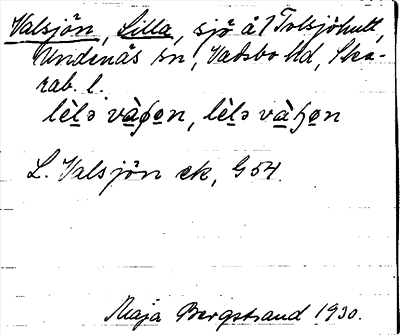 Valsjön, Lilla, sjö å 1 Tolsjöhult,
Undenäs sn, Vadsbo hd, Ska-
rab. l.
lèlə vàɧon, lèlə vàɧon
L. Valsjön ek, G 54.
Maja Bergstrand 1930.